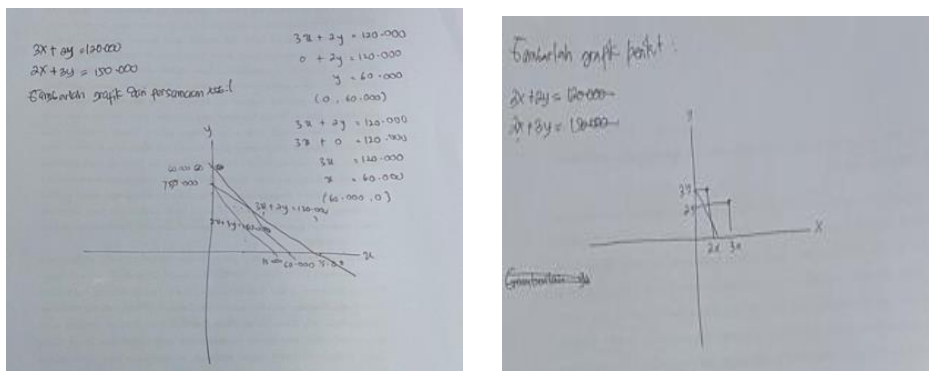 3x + 2y = 120.000
2x + 3y = 150.000
Gambarlah grafik dari persamaan
3x + 2y = 120.000
0 + 2y = 120.000
y = 60.000
(0, 60.000)
3x + 2y = 120.000
3x + 0 = 120.000
3x = 120.000
x = 60.000
(60.000, 0)
y
60.000
3x + 2y = 120.000
60.000
x
Gambarlah grafik berikut :
3x + 2y = 120.000
2x + 3y = 150.000
y
3y
2y
2x 3x
X